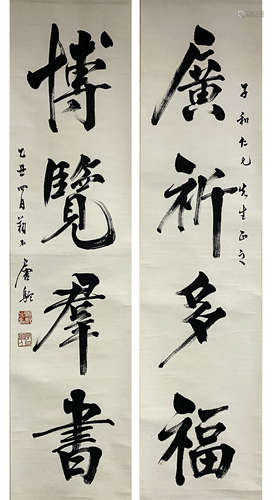 廣祈多福
子和仁兄先生正之
博覽羣書
乙丑四月
唐駝